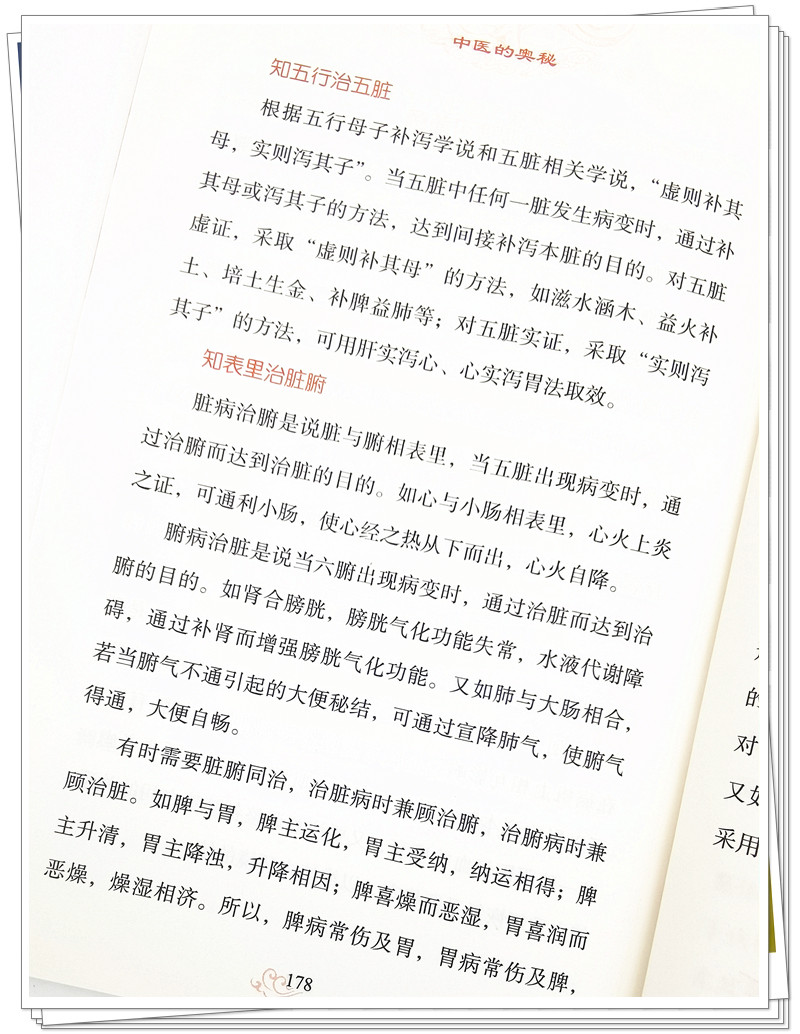 中医的奥秘
知五行治五脏
根据五行母子补泻学说和五脏相关学说，“虚则补其
母，实则泻其子”。当五脏中任何一脏发生病变时，通过补
其母或泻其子的方法，达到间接补泻本脏的目的。对五脏
虚证，采取“虚则补其母”的方法，如滋水涵木、益火补
土、培土生金、补脾益肺等；对五脏实证，采取“实则泻
其子”的方法，可用肝实泻心、心实泻胃法取效。
知表里治脏腑
脏病治腑是说脏与腑相表里，当五脏出现病变时，通
过治腑而达到治脏的目的。如心与小肠相表里，心火上炎
之证，可通利小肠，使心经之热从下而出，心火自降。
腑病治脏是说当六腑出现病变时，通过治脏而达到治
腑的目的。如肾合膀胱，膀胱气化功能失常，水液代谢障
碍，通过补肾而增强膀胱气化功能。又如肺与大肠相合，
若当腑气不通引起的大便秘结，可通过宣降肺气，使腑气
得通，大便自畅。
有时需要脏腑同治，治脏病时兼顾治腑，治腑病时兼
顾治脏。如脾与胃，脾主运化，胃主受纳，纳运相得；脾
主升清，胃主降浊，升降相因；脾喜燥而恶湿，胃喜润而
恶燥，燥湿相济。所以，脾病常伤及胃，胃病常伤及脾，
178
的
对
又如
采用